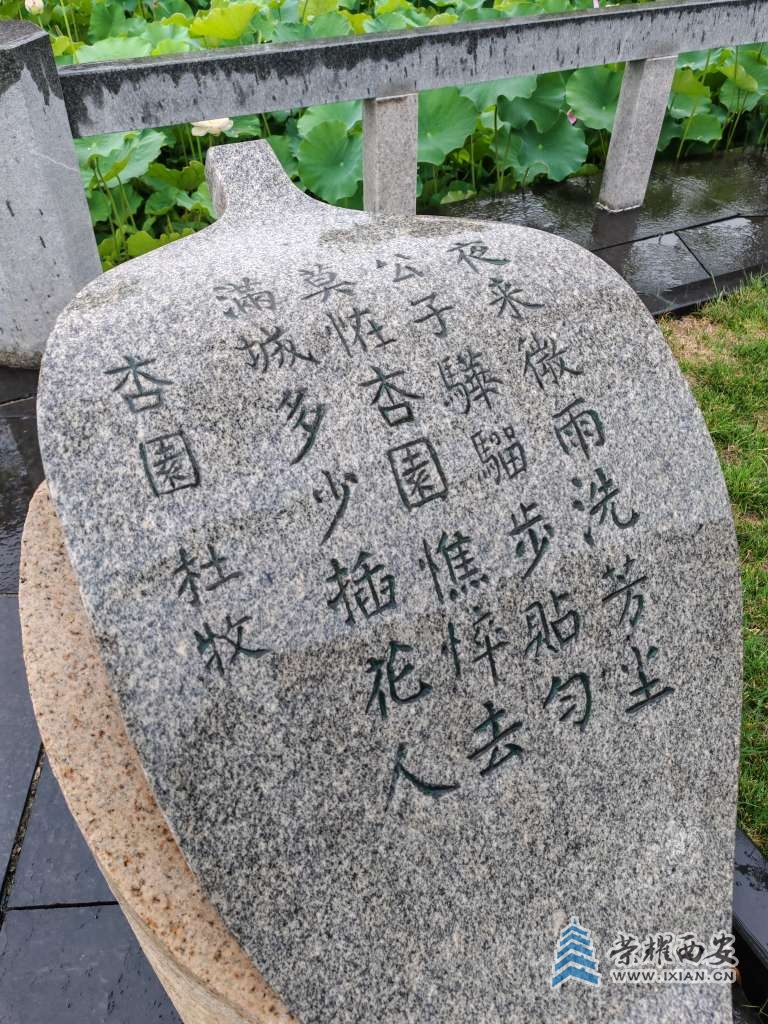 夜来微雨洗芳尘
公子驊騮步貼匀
莫恠杏園憔悴去
滿城多少插花人
杏園 杜牧
荣耀西安
WWW.IXIAN.CN